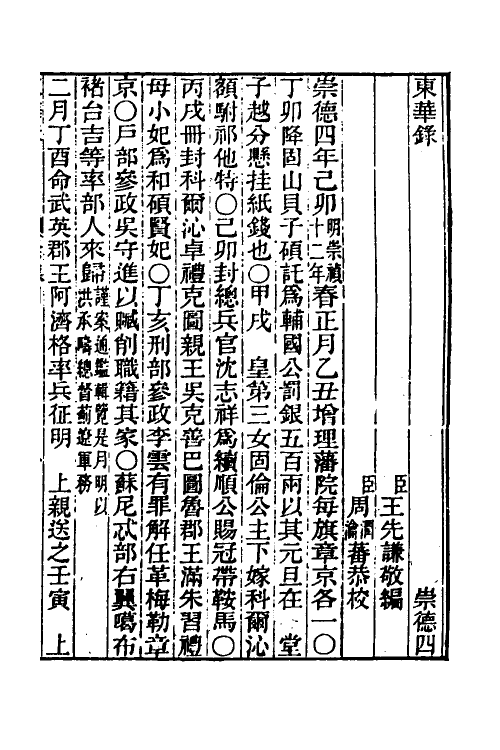 東華錄　崇德四
臣王先謙敬編
臣周潤蕃周瀹蕃恭校
崇德四年己卯明崇禎十二年春正月乙丑增理藩院每旗章京各一〇
丁卯降固山貝子碩託爲輔國公罰銀五百兩以其元旦在　堂
子越分懸挂紙錢也〇甲戌　皇第三女固倫公主下嫁科爾沁
額駙祁他特〇己卯封總兵官沈志祥爲續順公賜冠帶鞍馬〇
丙戌冊封科爾沁卓禮克圖親王吳克善巴圖魯郡王滿朱習禮
母小妃爲和碩賢妃〇丁亥刑部參政李雲有罪解任革梅勒章
京〇戶部參政吳守進以贓削職籍其家〇蘇尼忒部右翼噶布
褚台吉等率部人來歸謹案通鑑輯覽是月明以洪承疇總督薊遼軍務
二月丁酉命武英郡王阿濟格率兵征明　上親送之壬寅　上